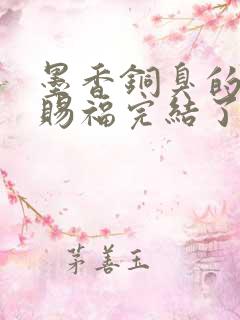 墨香銅臭的
賜福完結了
茅善玉